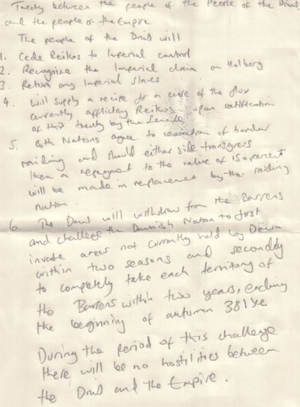 Treaty between the people of the People of the Druj
and the people of the Empire.
The people of the Druj will
1. Cede Reikos to Imperial control
2. Recognise the Imperial claim on Holberg
3. Return any Imperial slaves
4. Will supply a recipe for a cure of the
currently afflicting Reikos upon ratification
of this treaty by the Senate
5. Both Nations agree to of border
raiding and should either side transgress
then a repayment to the value of 150 percent
will be made in replacement by the raiding
nation
6. The Druj will withdraw from the Barrens
and challenge the Nation to first
invade areas not currently held by Dawn
within two seasons and secondly
to completely take each territory of
the Barrens within two years, ending
the beginning of autumn 381YE
During the period of this challenge
there will be no hostilities between
the Druj and the Empire.